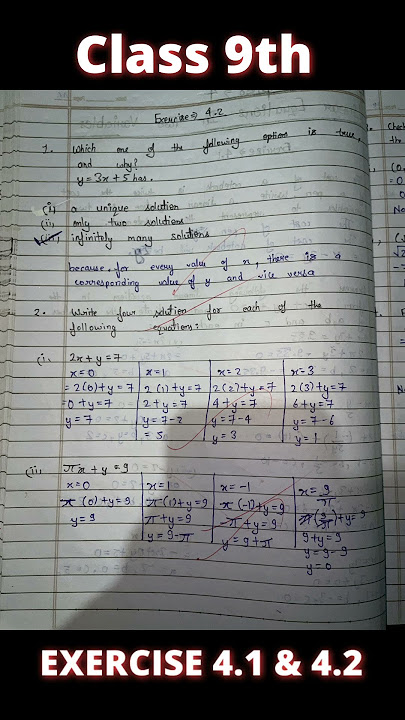 Class 9th
Exercise⇒ 4.2
1. Which one of the following options is true,
and why?
y = 3x + 5 has.
(i) a unique solution
(ii) only two solutions
(iii) infinitely many solutions
because, for every value of x, there is a
corresponding value of y and vice versa
2. Write four solution for each of the
following equations:
(i). 2x + y = 7
x=0 x=1 x=2 x=3
=2(0)+y=7 2(1)+y=7 2(2)+y=7 2(3)+y=7
=0+y=7 2+y=7 4+y=7 6+y=7
y=7 y=7-2 y=7-4 y=7-6
=5 y=3 y=1
(ii) πx + y = 9
x=0 x=1 x=-1 x=9/π
π(0)+y=9 π(1)+y=9 π(-1)+y=9 π(9/π)+y=9
y=9 π+y=9 -π+y=9 9+y=9
y=9-π y=9+π y=9-9
y=0
EXERCISE 4.1 & 4.2